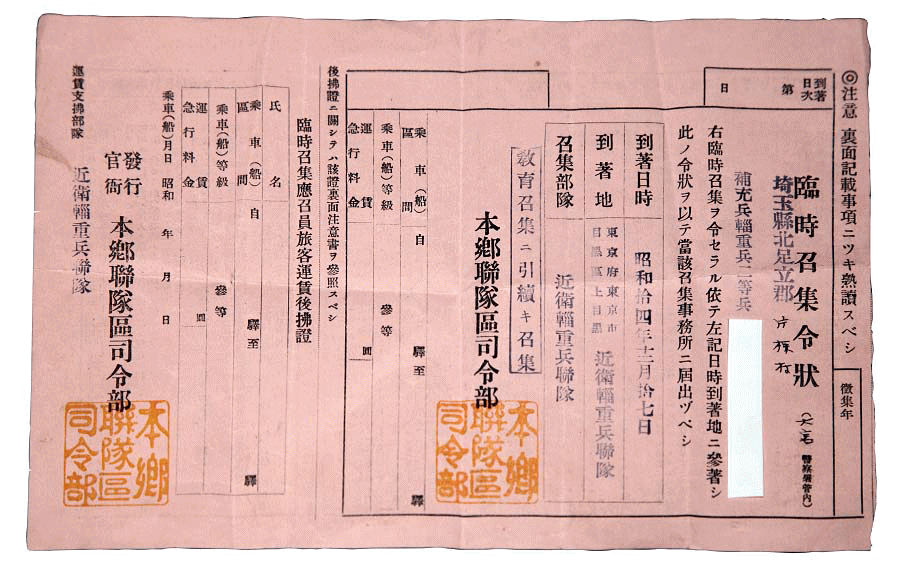 ◎注意 裏面記載事項ニツキ熟讀スベシ
徵集年
到著日次
第
日
臨時召集令狀
埼玉縣北足立郡
片柳村
(大宮警察署管內)
補充兵輜重兵二等兵
右臨時召集ヲ令セラル依テ左記日時到著地ニ參著シ
此ノ令狀ヲ以テ當該召集事務所ニ屆出ヅベシ
到著日時
昭和拾四年十二月拾七日
到著地
東京府東京市
目黑區上目黑
近衞輜重兵聯隊
召集部隊
近衞輜重兵聯隊
敎育召集ニ引續キ召集
本鄕聯隊區司令部
本鄕聯隊區司令部
乘車(船)區間
自
驛至
驛
乘車(船)等級
參等
運賃
急行料金
圓
後拂證ニ關シテハ該證裏面注意書ヲ參照スベシ
臨時召集應召員旅客運賃後拂證
氏名
乘車(船)區間
自
驛至
驛
乘車(船)等級
參等
運賃
急行料金
圓
乘車(船)月日 昭和 年 月 日
發行官衙
本鄕聯隊區司令部
本鄕聯隊區司令部
運賃支拂部隊
近衞輜重兵聯隊